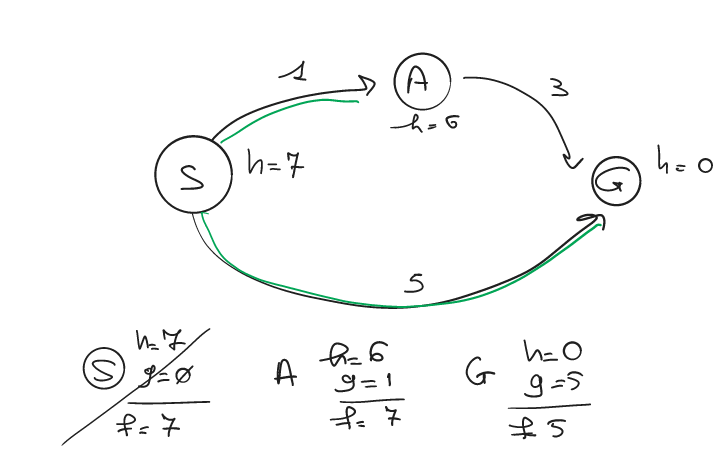 1
A
3
h=6
h=7
S
G
h=0
5
S
h=7
g=0
f=7
A
h=6
g=1
f=7
G
h=0
g=5
f 5